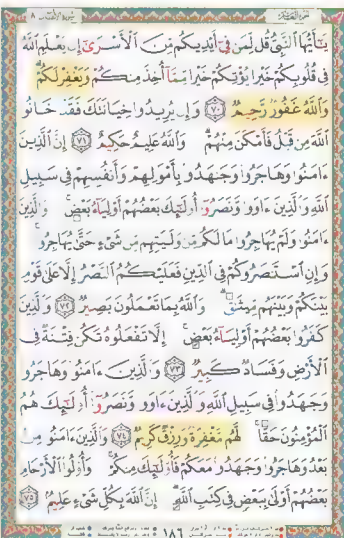 يَٰٓأَيُّهَا ٱلنَّبِىُّ قُل لِّمَن فِىٓ أَيْدِيكُم مِّنَ ٱلْأَسْرَىٰٓ إِن يَعْلَمِ ٱللَّهُ
فِى قُلُوبِكُمْ خَيْرًا يُؤْتِكُمْ خَيْرًا مِّمَّآ أُخِذَ مِنكُمْ وَيَغْفِرْ لَكُمْ
وَٱللَّهُ غَفُورٌ رَّحِيمٌ ٧٠ وَإِن يُرِيدُوا۟ خِيَانَتَكَ فَقَدْ خَانُوا۟
ٱللَّهَ مِن قَبْلُ فَأَمْكَنَ مِنْهُمْ وَٱللَّهُ عَلِيمٌ حَكِيمٌ ٧١ إِنَّ ٱلَّذِينَ
ءَامَنُوا۟ وَهَاجَرُوا۟ وَجَٰهَدُوا۟ بِأَمْوَٰلِهِمْ وَأَنفُسِهِمْ فِى سَبِيلِ
ٱللَّهِ وَٱلَّذِينَ ءَاوَوا۟ وَّنَصَرُوٓا۟ أُو۟لَٰٓئِكَ بَعْضُهُمْ أَوْلِيَآءُ بَعْضٍ وَٱلَّذِينَ
ءَامَنُوا۟ وَلَمْ يُهَاجِرُوا۟ مَا لَكُم مِّن وَلَٰيَتِهِم مِّن شَىْءٍ حَتَّىٰ يُهَاجِرُوا۟
وَإِنِ ٱسْتَنصَرُوكُمْ فِى ٱلدِّينِ فَعَلَيْكُمُ ٱلنَّصْرُ إِلَّا عَلَىٰ قَوْمٍۭ
بَيْنَكُمْ وَبَيْنَهُم مِّيثَٰقٌ وَٱللَّهُ بِمَا تَعْمَلُونَ بَصِيرٌ ٧٢ وَٱلَّذِينَ
كَفَرُوا۟ بَعْضُهُمْ أَوْلِيَآءُ بَعْضٍ إِلَّا تَفْعَلُوهُ تَكُن فِتْنَةٌ فِى
ٱلْأَرْضِ وَفَسَادٌ كَبِيرٌ ٧٣ وَٱلَّذِينَ ءَامَنُوا۟ وَهَاجَرُوا۟
وَجَٰهَدُوا۟ فِى سَبِيلِ ٱللَّهِ وَٱلَّذِينَ ءَاوَوا۟ وَّنَصَرُوٓا۟ أُو۟لَٰٓئِكَ هُمُ
ٱلْمُؤْمِنُونَ حَقًّا لَّهُم مَّغْفِرَةٌ وَرِزْقٌ كَرِيمٌ ٧٤ وَٱلَّذِينَ ءَامَنُوا۟ مِنۢ
بَعْدُ وَهَاجَرُوا۟ وَجَٰهَدُوا۟ مَعَكُمْ فَأُو۟لَٰٓئِكَ مِنكُمْ وَأُو۟لُوا۟ ٱلْأَرْحَامِ
بَعْضُهُمْ أَوْلَىٰ بِبَعْضٍ فِى كِتَٰبِ ٱللَّهِ إِنَّ ٱللَّهَ بِكُلِّ شَىْءٍ عَلِيمٌۢ ٧٥
١٨٦